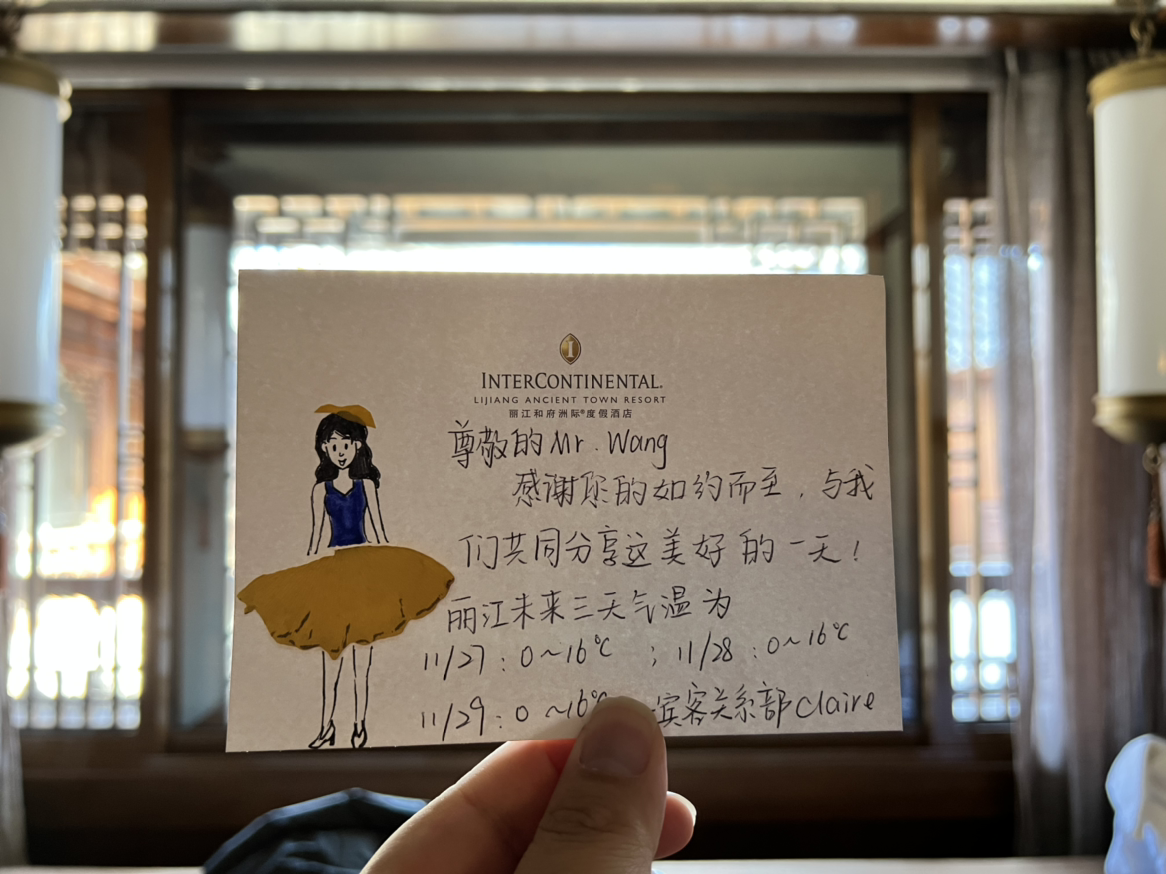 INTERCONTINENTAL.
LIJIANG ANCIENT TOWN RESORT
丽江和府洲际®度假酒店
尊敬的Mr. Wang
感谢您的如约而至，与我
们共同分享这美好的一天！
丽江未来三天气温为
11/27：0～16℃ ；11/28：0～16℃
11/29：0～16℃ 宾客关系部Claire